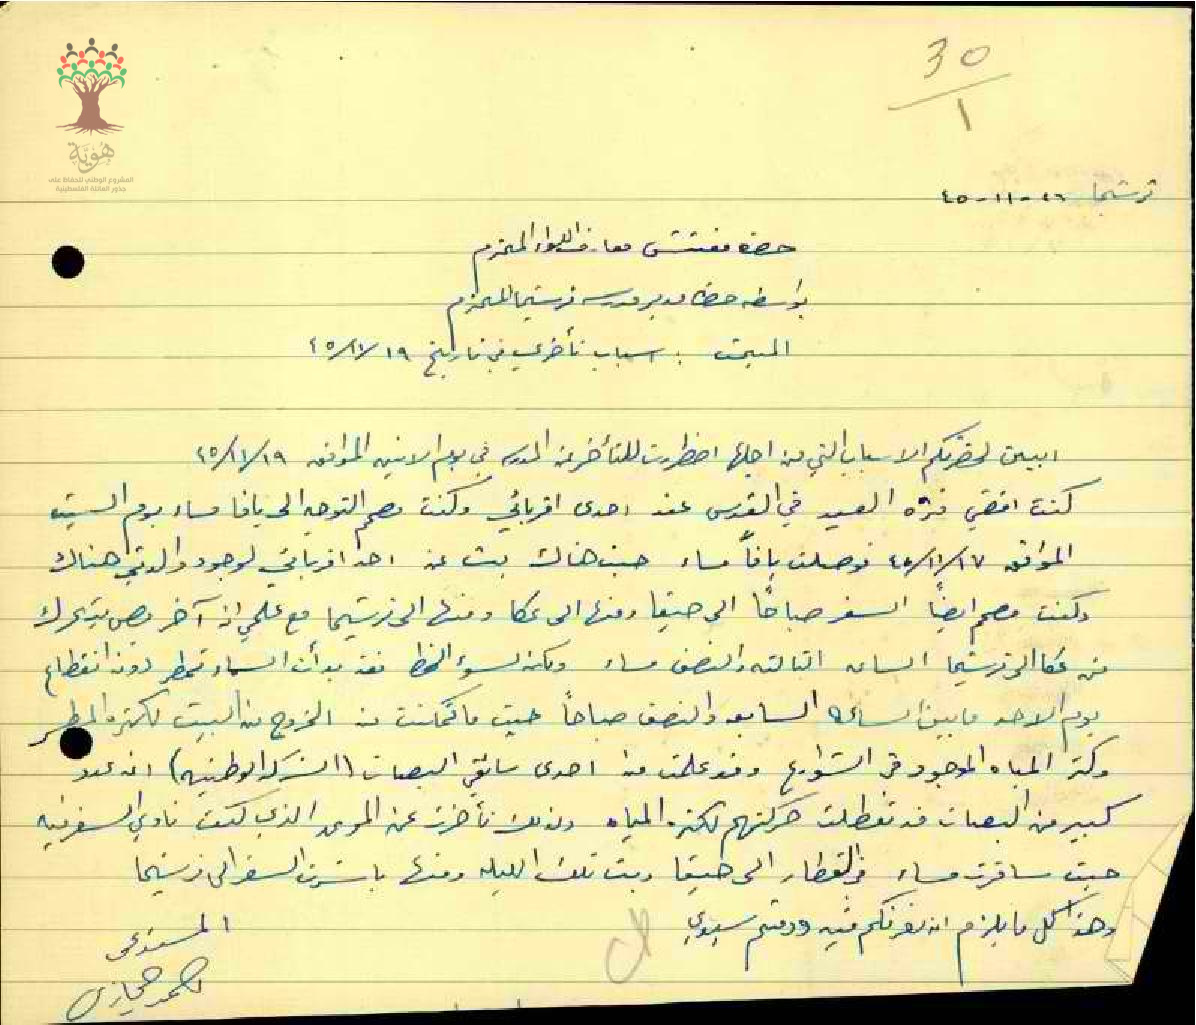 هُوِيَّة
المشروع الوطني للحفاظ على
جذور العائلة الفلسطينية
30
1
ترشيحا ٢٦-١١-٤٥
حضرة مفتش معارف اللواء المحترم
بواسطه حضرة مدير مدرسه ترشيحا المحترم
المبحث : اسباب تأخري في تاريخ ١٩/١١/٤٥
ابين لحضرتكم الاسباب التي من اجلها اضطررت للتأخر عن المدرسه في يوم الاثنين الموافق ١٩/١١/٤٥
كنت اقضي فتره العيد في القدس عند احدى اقربائي وكنت مصمم التوجه الى يافا مساء يوم السبت
الموافق ١٧/١١/٤٥ فوصلت يافا مساء حيث هناك بت عند احد اقربائي لوجود والدتي هناك
وكنت مصمم ايضاً السفر صباحاً الى حيفا ومنها الى عكا ومنها الى ترشيحا مع علمي ان آخر بص يتحرك
من عكا الى ترشيحا الساعه الثالثه والنصف مساء ولكن لسوء الحظ فقد بدأت السماء تمطر دون انقطاع
يوم الاحد ما بين الساعة السابعه والنصف صباحاً حيث ما تمكنت من الخروج من البيت لكثره المطر
وكثر المياه الموجود في الشوارع وقد علمت من احدى سائقي البصات (الشركه الوطنيه) ان عدد
كبير من البصات قد تعطلت حركتهم لكثره المياه ولذلك تأخرت عن الموعد الذي كنت ناوي السفر فيه
حيث سافرت مساء في القطار الى حيفا وبت تلك الليله ومنها باشرت السفر الى ترشيحا
وهذا كل ما يلزم ان نعرفكم فيه ودمتم سيدي
المستدعي
احمد حجازي